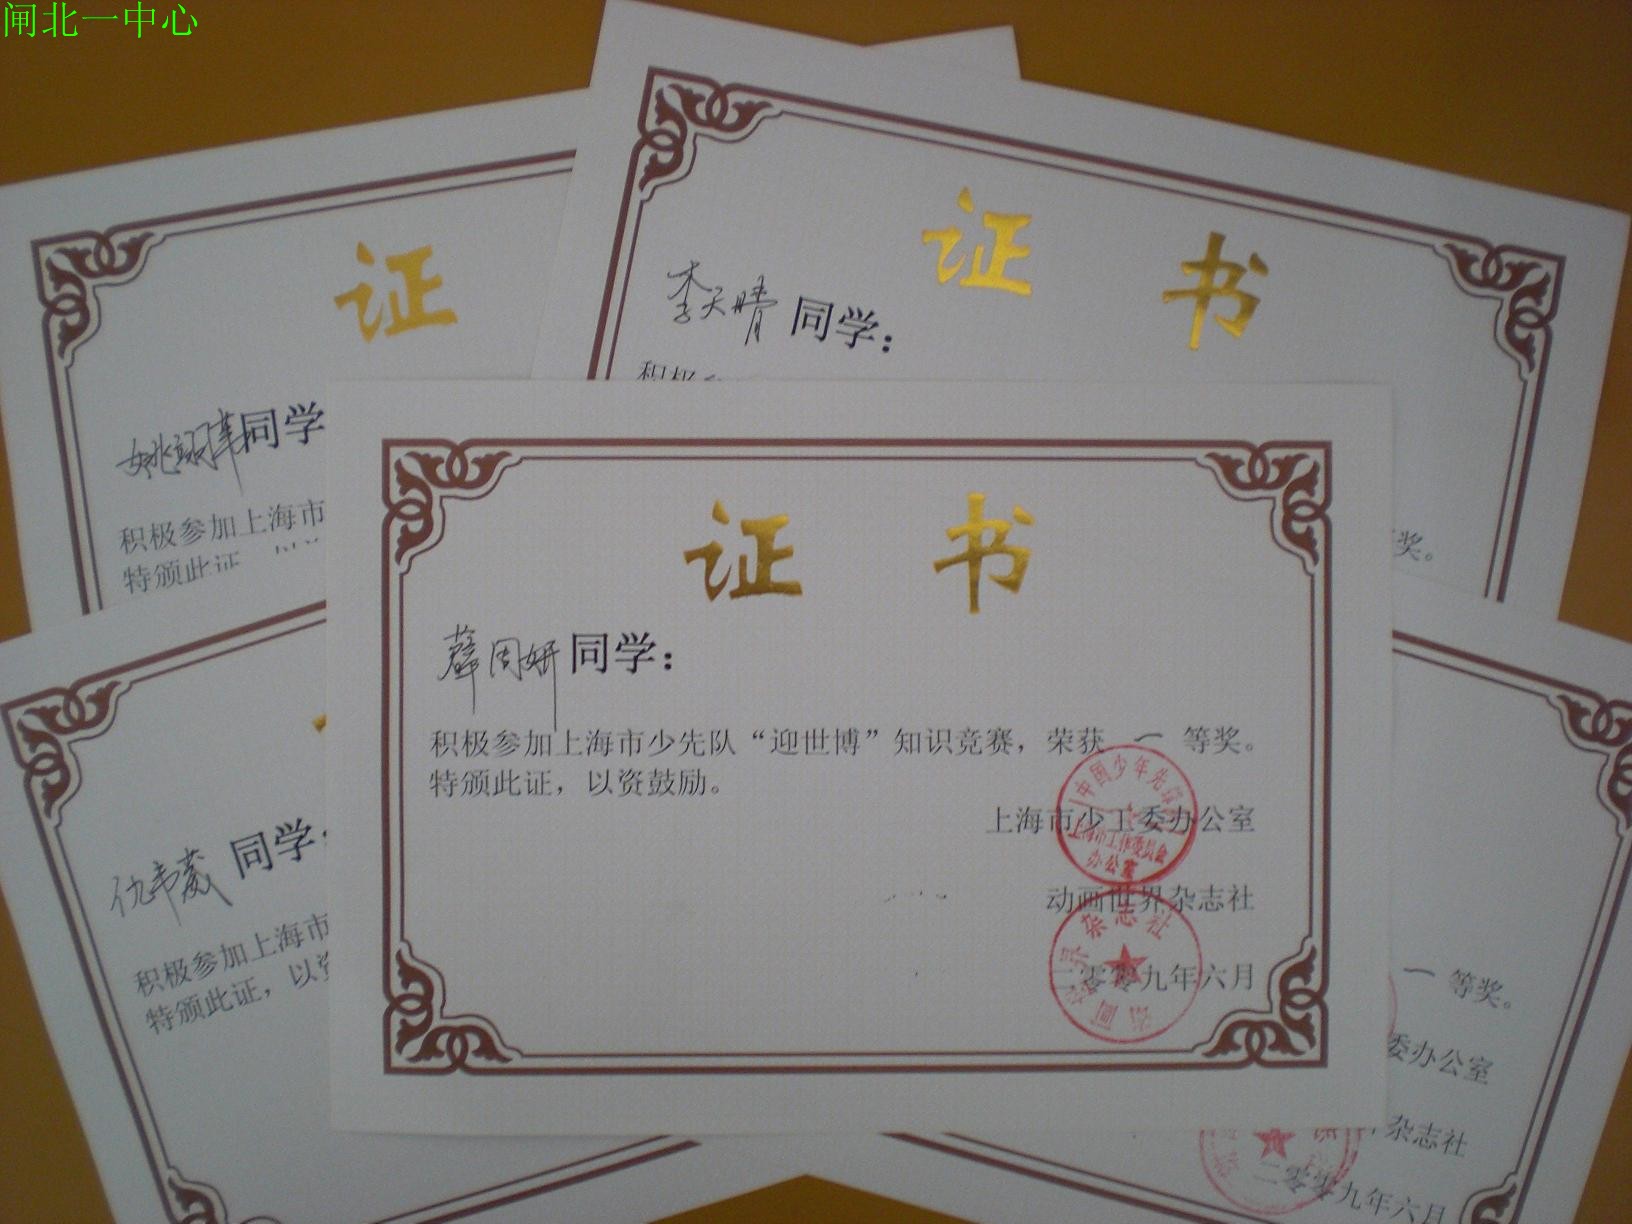 闸北一中心
证
同学
积极参加上海市
特颁此证
证书
李天晴 同学：
积极
等奖。
证书
薛周妍 同学：
积极参加上海市少先队“迎世博”知识竞赛，荣获 一 等奖。
特颁此证，以资鼓励。
上海市少工委办公室
中国少年先锋
上海市工作委员会
办公室
动画世界杂志社
二零零九年六月
仇韦葳 同学：
积极参加上海市
特颁此证，以资
一 等奖。
委办公室
杂志社
二零零九年六月